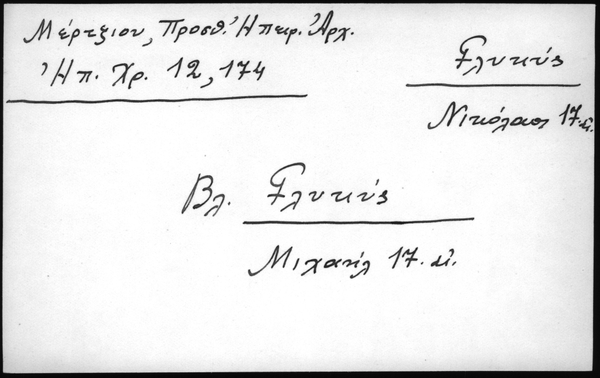 Μέρτζιου, Προσθ. Ἠπειρ. Ἀρχ.
Ἠπ. Χρ. 12, 174
Γλυκύς
Νικόλαος 17. αἰ.
Βλ. Γλυκύς
Μιχαήλ 17. αἰ.